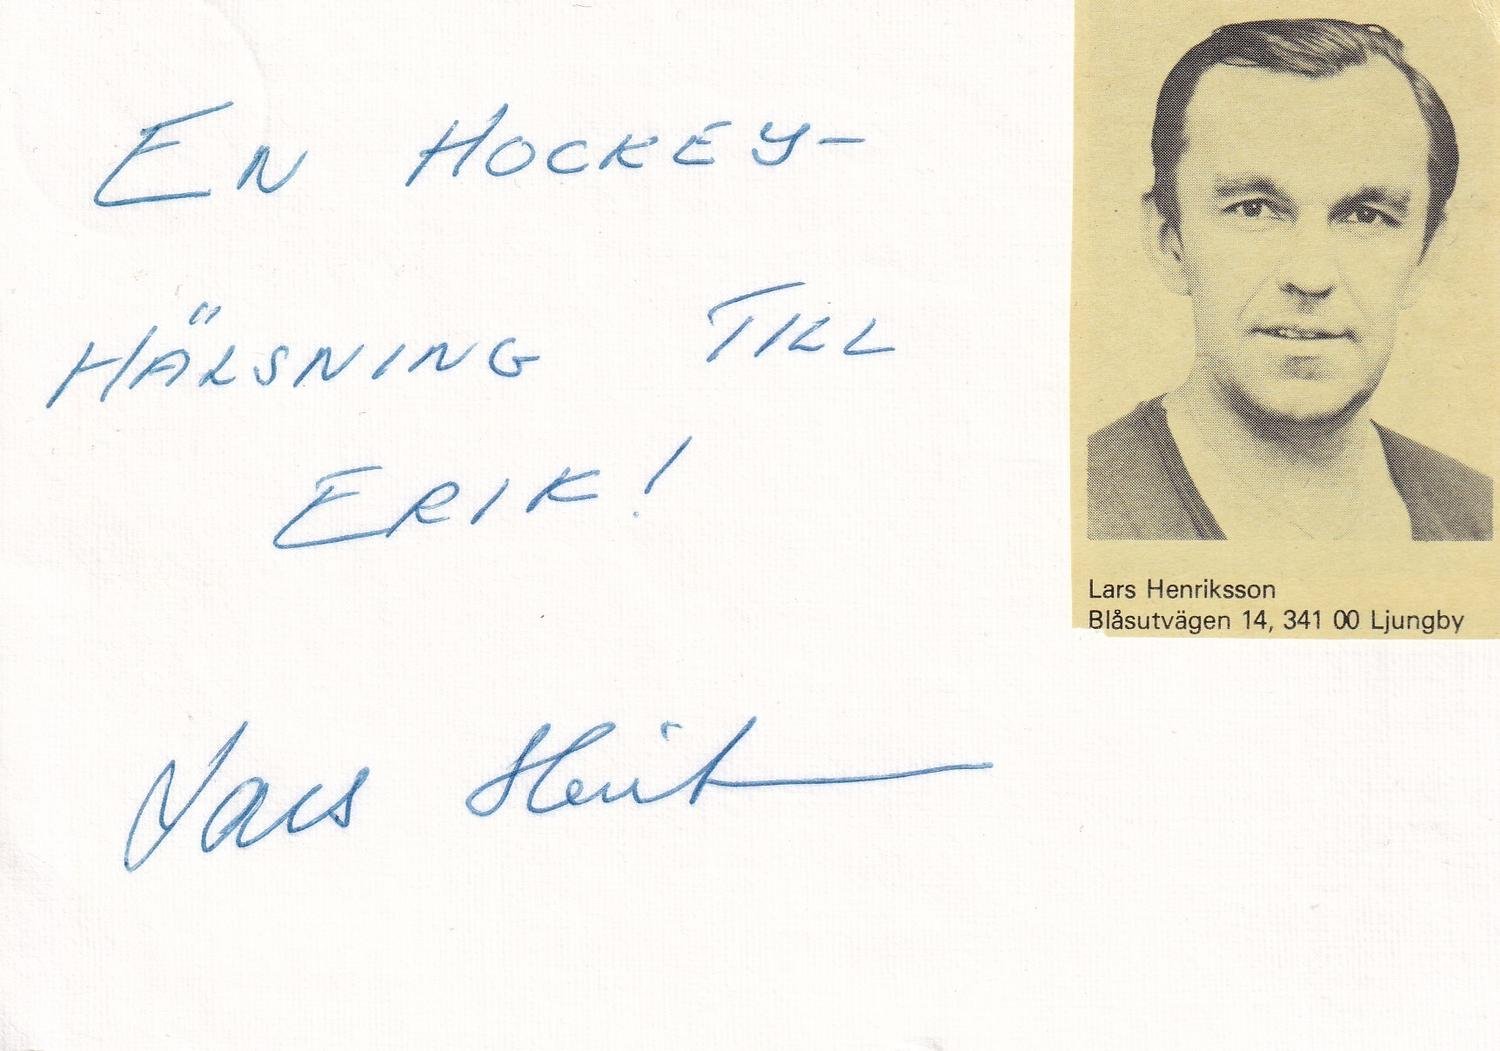 EN HOCKEY-
HÄLSNING TILL
ERIK!
Lars Henriksson
Blåsutvägen 14, 341 00 Ljungby
Lars